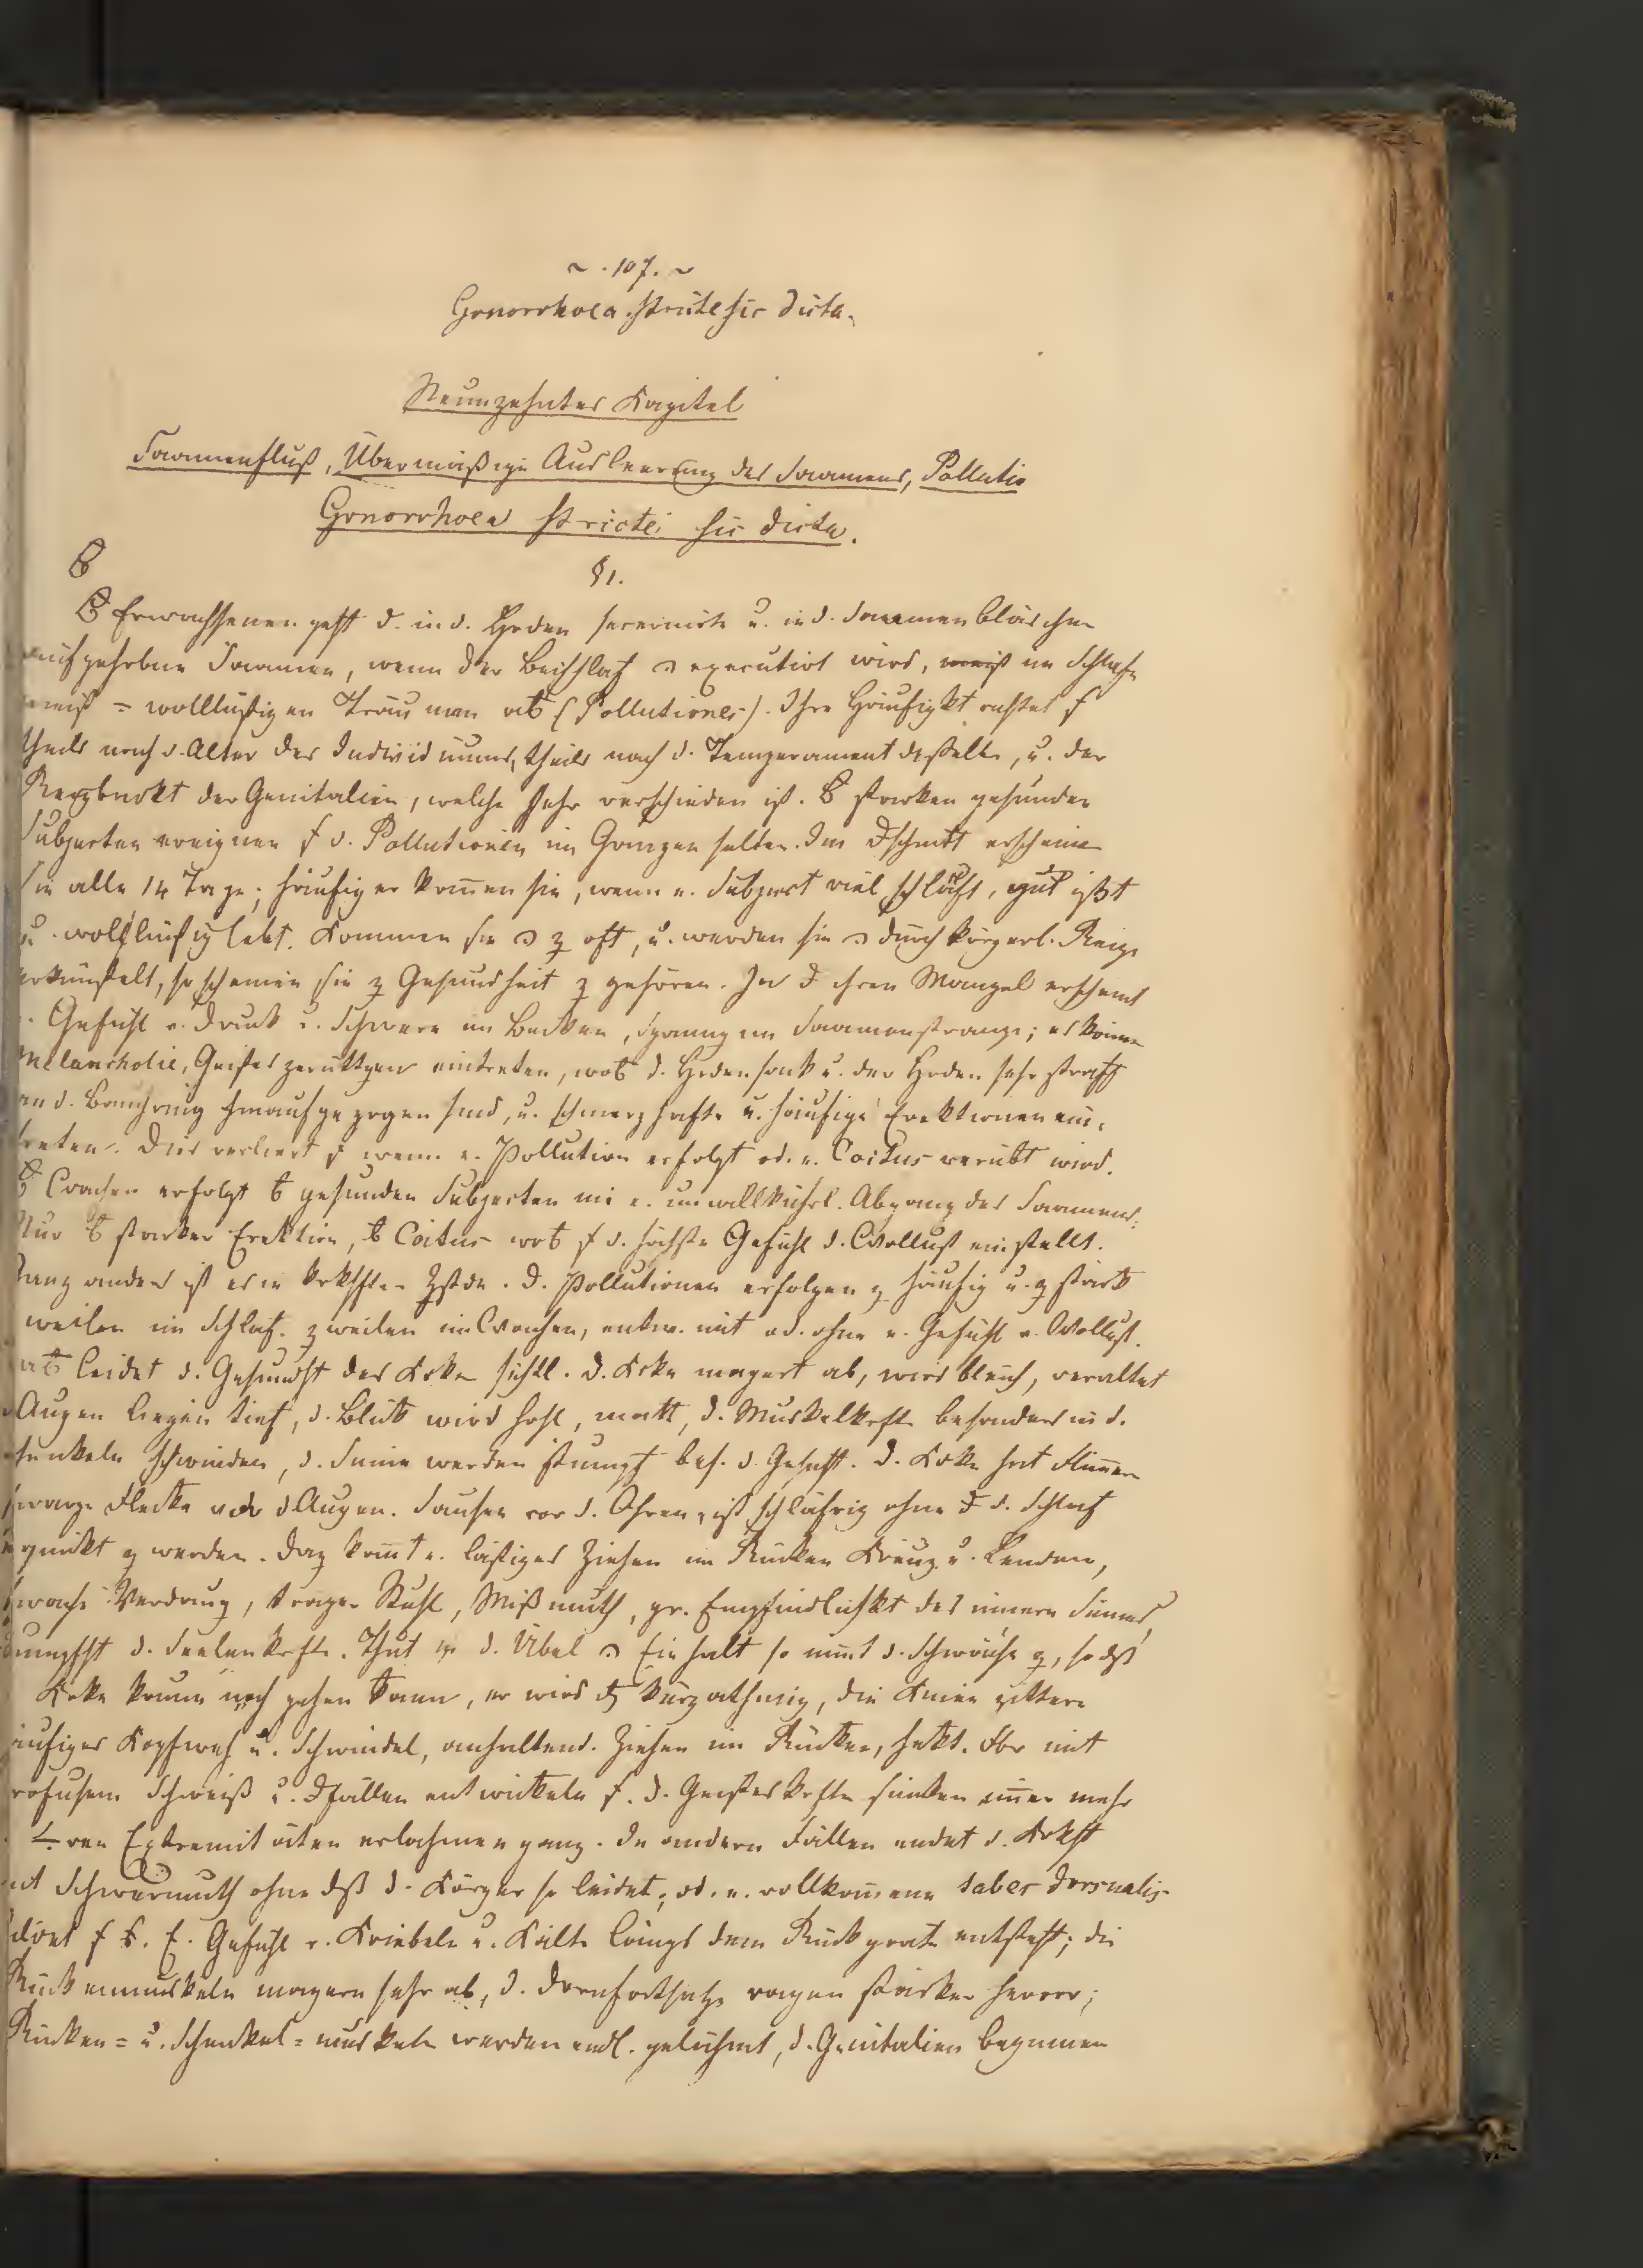 ~ . 107. ~
Gonorrhoea stricte sic dicta.
Neunzehntes Kapitel
Saamenfluß, Übermäßige Ausleerung des Saamens, Pollutio
Gonorrhoea stricte sic dicta.
§ 1.
Erwachsenen geht d. in d. Hoden secernirte u. in d. Saamenbläschen
aufgehobene Saamen, wenn der Beischlaf executirt wird, meist im Schlafe
meist = wollüstigen Träumen ab (Pollutiones). Ihre Häufigkt richtet s
theils nach d. Alter des Individuums, theils nach d. Temperament desselben, u. der
Reizbarkt der Genitalien, welche sehr verschieden ist. B starken gesunden
Subjecten ereignen s d. Pollutionen im Ganzen selten. Im Dschnitt erscheinen
sie alle 14 Tage; häufiger kom̄en sie, wenn e. Subject viel schläft, gut ißt
u. wollüstig lebt. Kommen sie z oft, u. werden sie durch körperl. Reize
erkünstelt, so scheinen sie z Gesundheit z gehören. In ihren Mangel erscheint
Gefühl v. Druck u. Schwere im Becken, Spannung im Saamenstrange; es können
Melancholie, Geisteszerüttgen eintreten, wob d. Hodensack u. der Hoden sehr straff
an d. Bauchring hinaufgezogen sind, u. schmerzhafte u. häufige Erektionen ein-
treten. Dies verliert s wenn e. Pollution erfolgt od. e. Coitus verübt wird.
B Wachen erfolgt b gesunden Subjecten nie e. unwillkührl. Abgang des Saamens.
Nur b starker Erektion, b Coitus wob s d. höchste Gefühl d. Wollust einstellt.
Ganz anders ist es im krkhften Zstde. D. Pollutionen erfolgen z häufig u. z stark
weilen im Schlaf. zweilen im Wachen, entw. mit od. ohne e. Gefühl v. Wollust.
leidet d. Gesundht des Krken sichtl. D. Krke magert ab, wird bleich, veraltet
Augen liegen tief, d. Blick wird hohl, matt, d. Muskelkrfte besonders in d.
Schenkeln schwinden, d. Sinne werden stumpf bes. d. Gesicht. D. Krke hat Flim̄ern
schwarze Flecke vor d Augen. Sausen vor d. Ohren, ist schläfrig ohne d. Schlaf
erquickt z werden. Daz kom̄t e. lästiges Ziehen im Rücken Kreuz u. Lenden,
schwache Verdaug, träger Stuhl, Mißmuth, gr. Empfindlichkt des innern Sinnes,
Stumpfht d. Seelenkrfte. Thut d. Übel Einhalt so nim̄t d. Schwäche z, so dß
Krke kaum noch gehen kann, er wird kurzathmig, die Kniee zittern
häufiges Kopfweh u. Schwindel, anhaltend. Ziehen im Rücken, hekt. Fbr mit
profusem Schweiß u. Dfällen entwickeln s. D. Geisteskrfte sinken im̄er mehr
Extremitäten erlahmen ganz. In andern Fällen endet d. Krkht
mit Schwermuth ohne dß d. Körper so leidet, od. e. vollkom̄ene tabes dorsualis
bildet s E. Gefühl v. Kriebeln u. Kälte längs dem Rückgrate entsteht; die
Rückenmuskeln magern sehr ab, d. Dornfortsätze ragen stärker hervor;
Rücken= u. Schenkel=muskeln werden endl. gelähmt, d. Genitalien beginnen